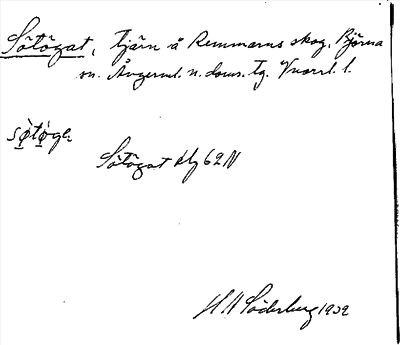 Sötögat, tjärn å Remmarns skog, Björna
sn. Ångerml. n. doms. tg. Vnorrl. l.
sø̀tø̀gɐ
Sötögat kbl 62 N
H M Söderberg 1939